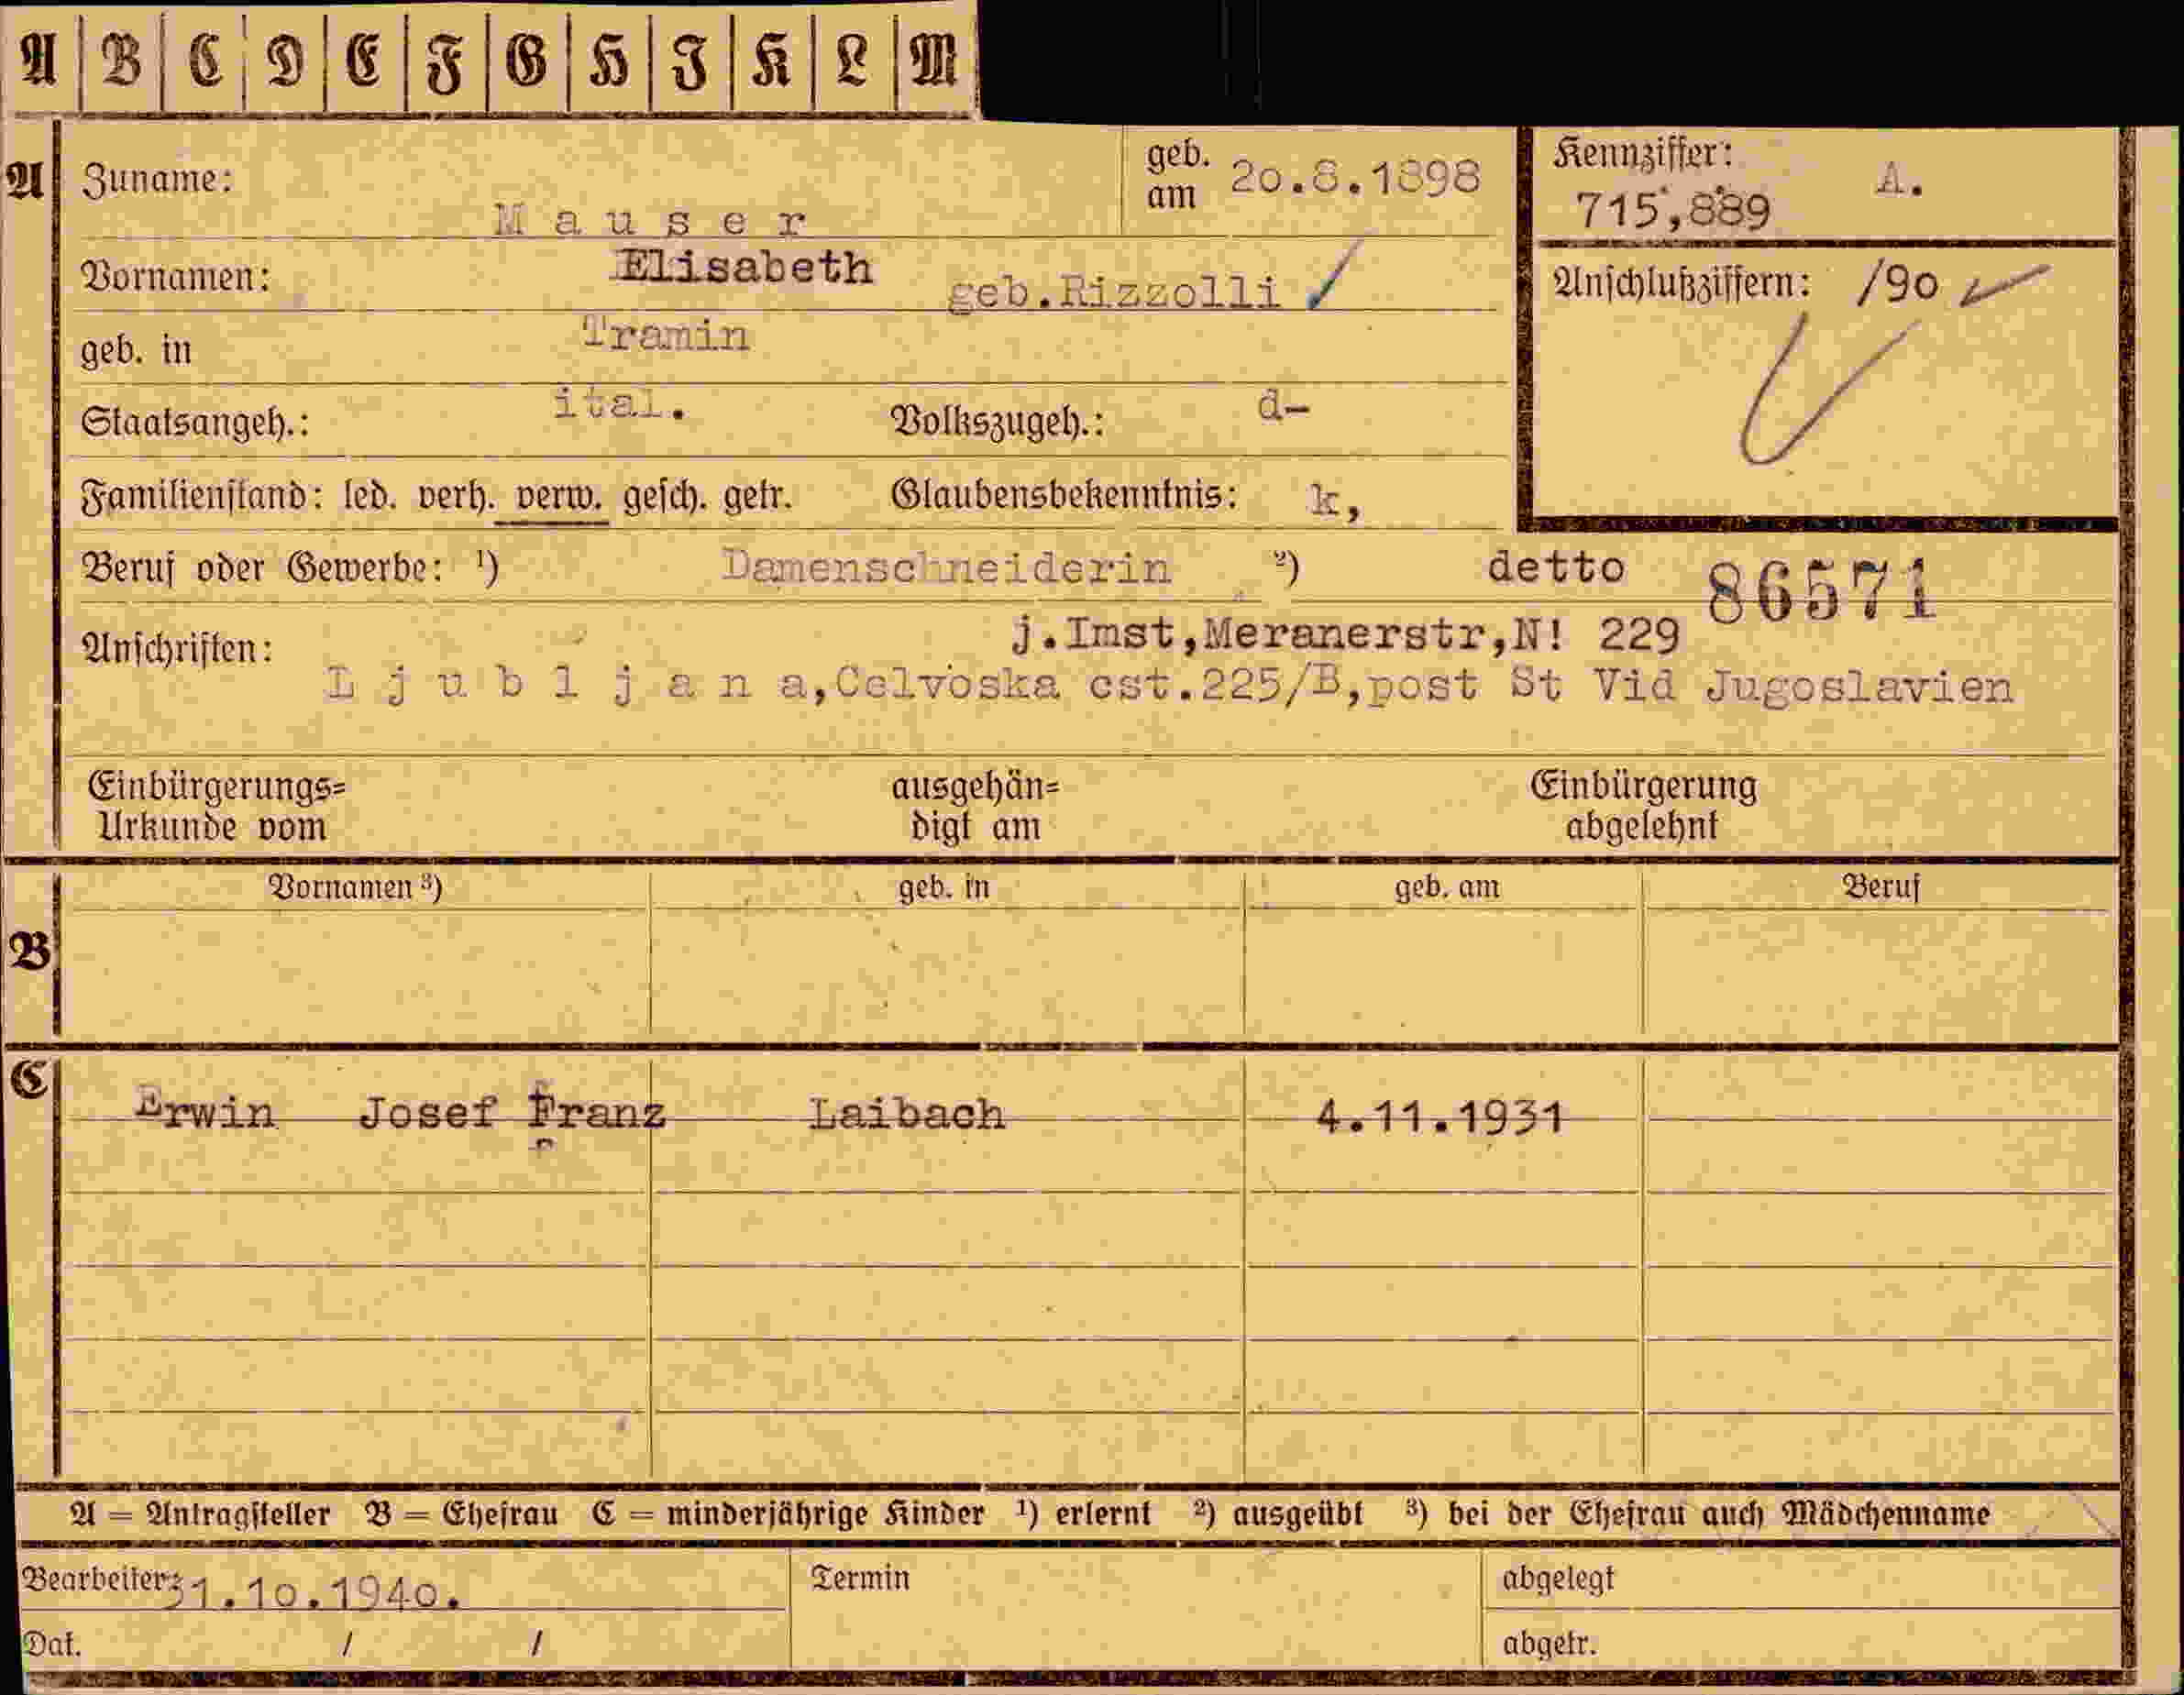 A B C D E F G H I K L M
A
Zuname: Mauser
geb. am 20.8.1898
Kennziffer: A.
715,889
Vornamen: Elisabeth geb.Rizzolli
Anschlußziffern: /90
geb. in Tramin
Staatsangeh.: ital. Volkszugeh.: d-
Familienstand: led. verh. verw. gesch. getr. Glaubensbekenntnis: k,
Beruf oder Gewerbe: ¹) Damenschneiderin ²) detto
86571
Anschriften: j.Imst,Meranerstr,N! 229
Ljubljana,Celvoska cst.225/B,post St Vid Jugoslavien
Einbürgerungs= ausgehän= Einbürgerung
Urkunde vom digt am abgelehnt
B
Vornamen ³) geb. in geb. am Beruf
C
Erwin Josef Franz Laibach 4.11.1931
A = Antragsteller B = Ehefrau C = minderjährige Kinder ¹) erlernt ²) ausgeübt ³) bei der Ehefrau auch Mädchenname
Bearbeiter: 31.10.1940. Termin abgelegt
Dat. / / abgetr.